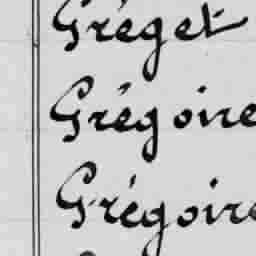 Gréget
Grégoire
Grégoire